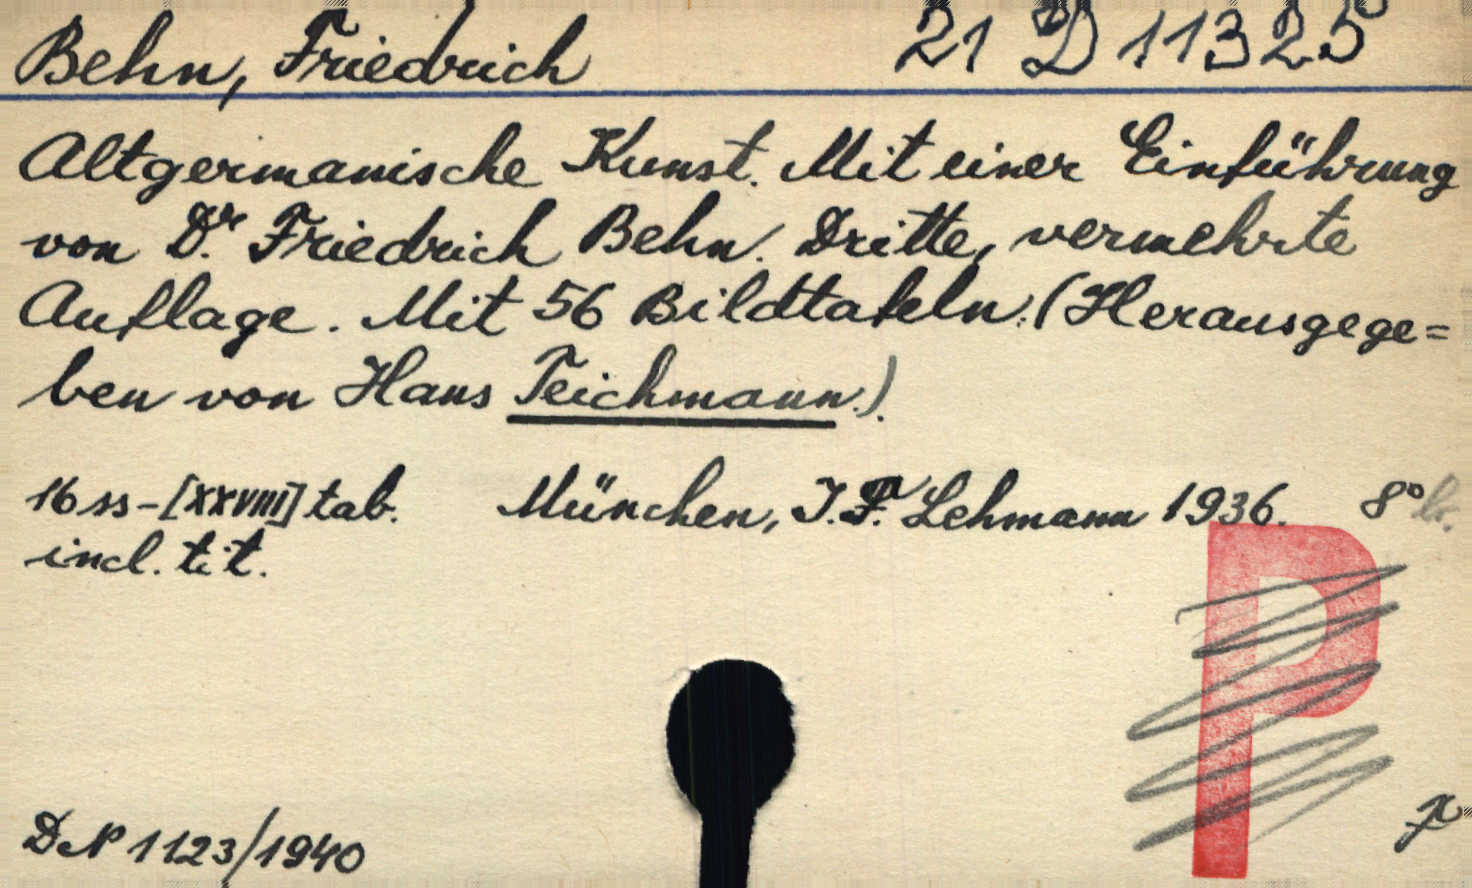 Behn, Friedrich 21 D 11325
Altgermanische Kunst. Mit einer Einführung
von Dr. Friedrich Behn. Dritte, vermehrte
Auflage. Mit 56 Bildtafeln. (Herausgege=
ben von Hans Teichmann.)
16 ss-[XXVIII] tab. München, J.F. Lehmann 1936. 8° br.
incl. tit.
P
DN 1123/1940